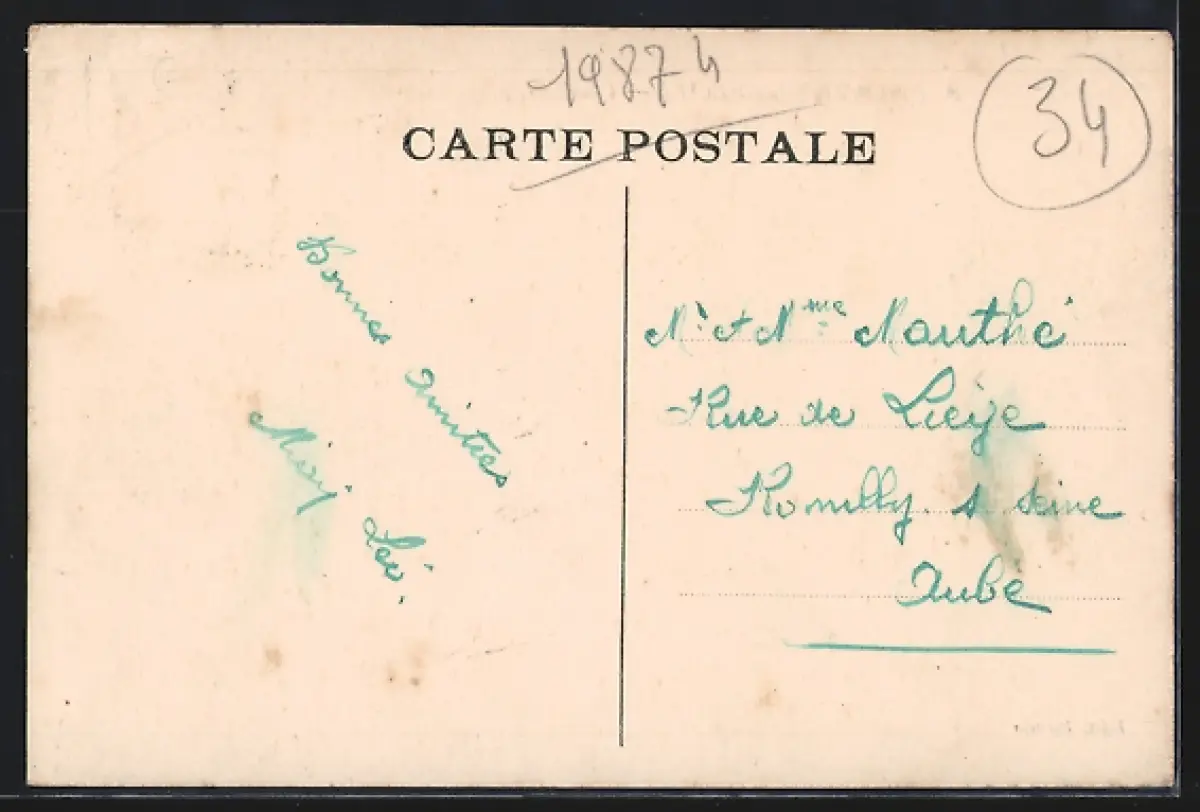 19874
34
CARTE POSTALE
Bonnes Amitiés
Léo.
Mr et Mme Mauthé
Rue de Liège
Romilly s Seine
Aube